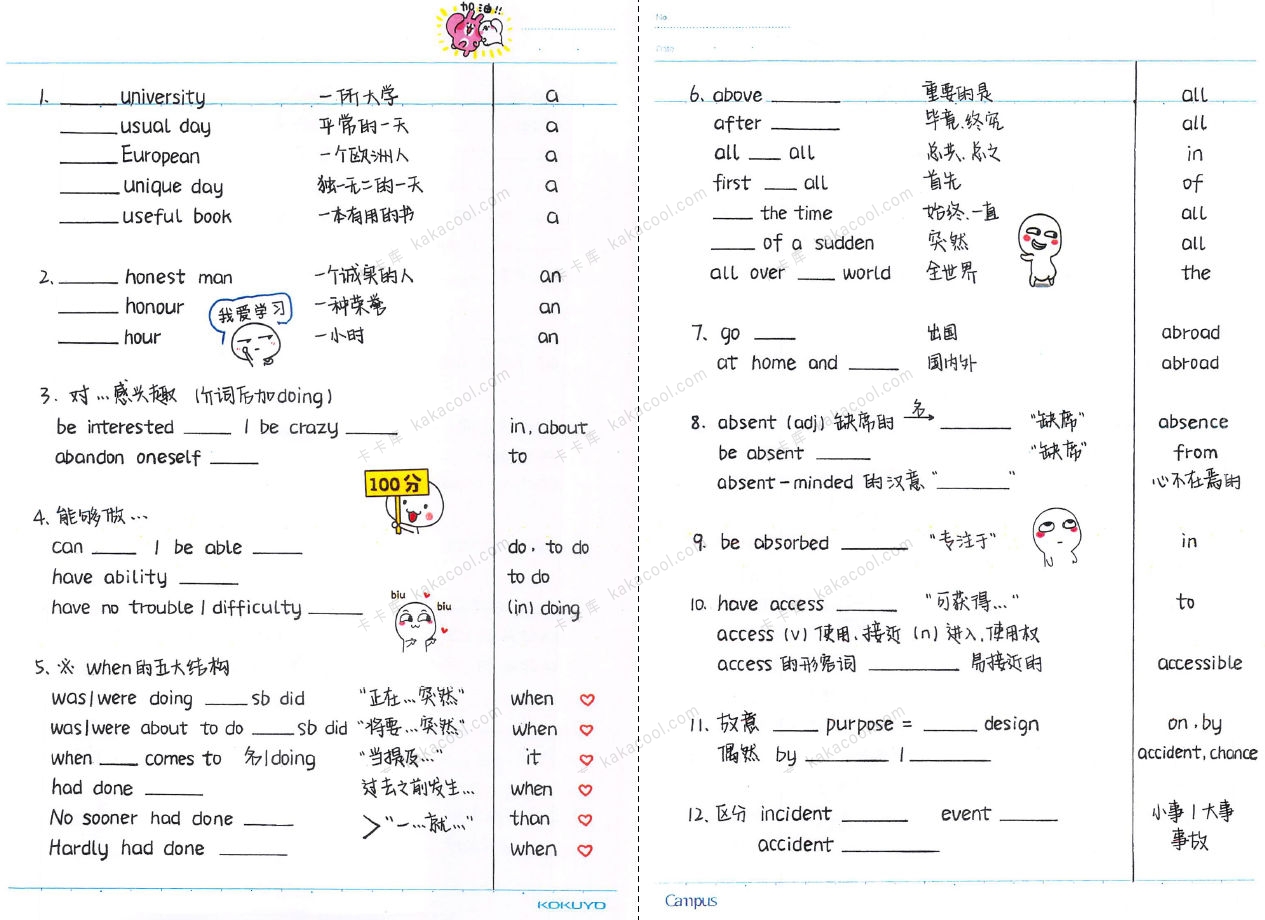 加油!!
1. ______ university 一所大学 a
______ usual day 平常的一天 a
______ European 一个欧洲人 a
______ unique day 独一无二的一天 a
______ useful book 一本有用的书 a
2、______ honest man 一个诚实的人 an
______ honour 一种荣誉 an
我爱学习
______ hour 一小时 an
3. 对…感兴趣 (介词后加doing)
be interested _____ / be crazy _____ in, about
abandon oneself _____ to
100分
4、能够做…
can _____ / be able _____ do, to do
have ability ______ to do
have no trouble / difficulty ______ (in) doing
biu biu
5、※ when的五大结构
was/were doing _____ sb did "正在…突然" when
was/were about to do _____ sb did "将要…突然" when
when _____ comes to 名/doing "当提及…" it
had done ______ 过去之前发生… when
No sooner had done _____ than
>"一…就…"
Hardly had done ______ when
KOKUYO
No.
Date
6、above ______ 重要的是 all
after ______ 毕竟、终究 all
all ____ all 总共、总之 in
first ____ all 首先 of
_____ the time 始终、一直 all
_____ of a sudden 突然 all
all over ____ world 全世界 the
7、go _____ 出国 abroad
at home and ______ 国内外 abroad
8、absent (adj) 缺席的 名→ ________ "缺席" absence
be absent ______ "缺席" from
absent-minded 的汉意 "________" 心不在焉的
9. be absorbed ______ "专注于" in
10. have access ______ "可获得…" to
access (v) 使用、接近 (n) 进入、使用权
access 的形容词 _________ 易接近的 accessible
11、故意 _____ purpose = ______ design on, by
偶然 by ________ / ________ accident, chance
12、区分 incident _______ event ______ 小事 / 大事
accident __________ 事故
Campus
卡卡库 kakacool.com